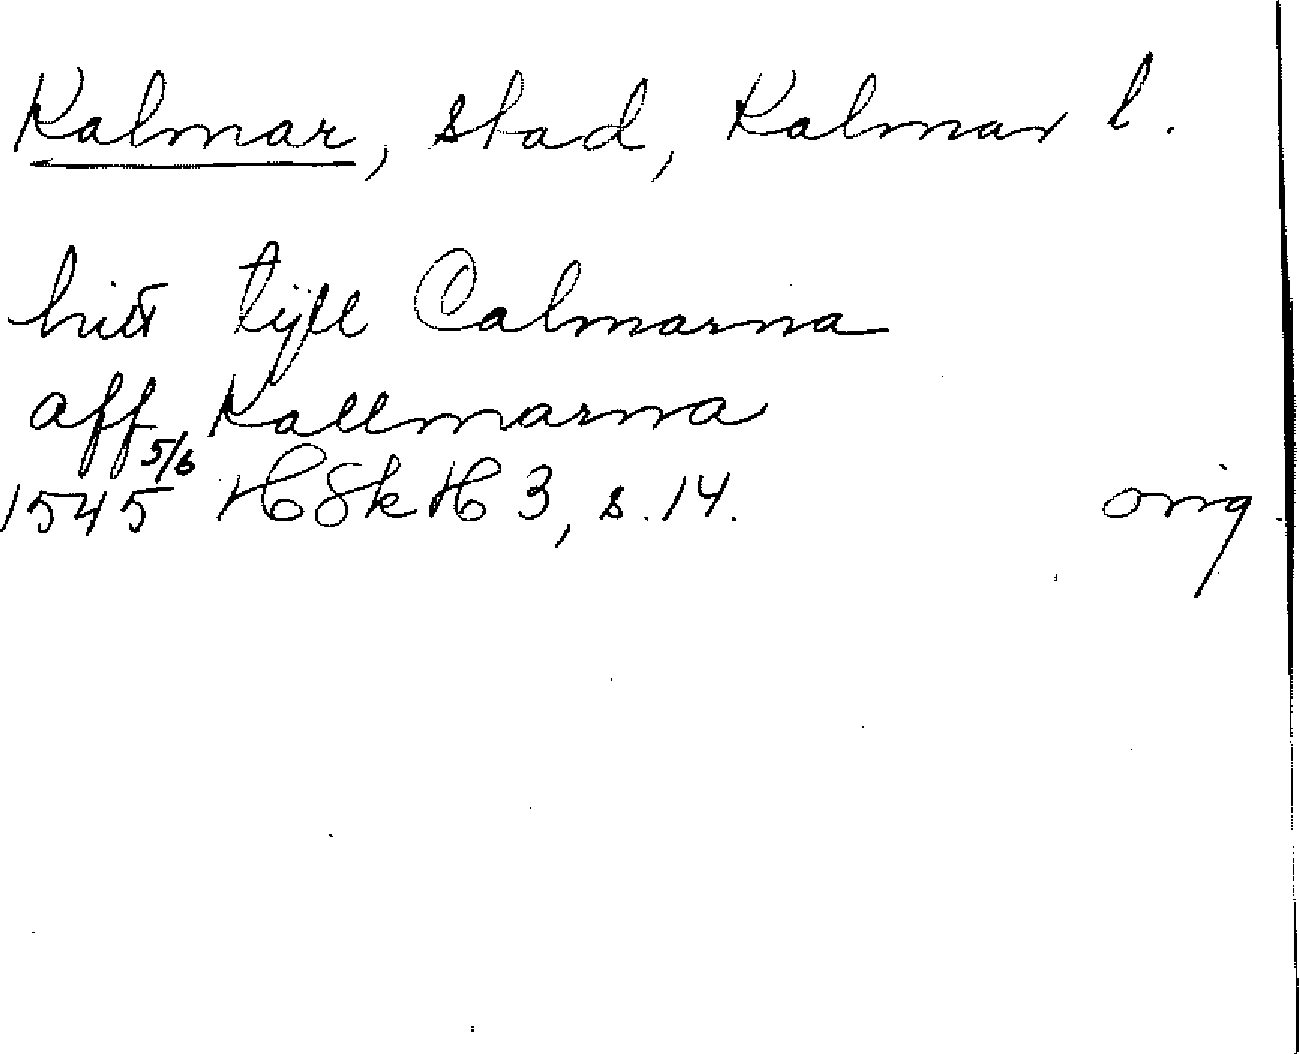 Kalmar, stad, Kalmar l.
hitt tijll Calmarna
aff Kallmarna
1545 5/6 HSkH 3, s. 14. orig